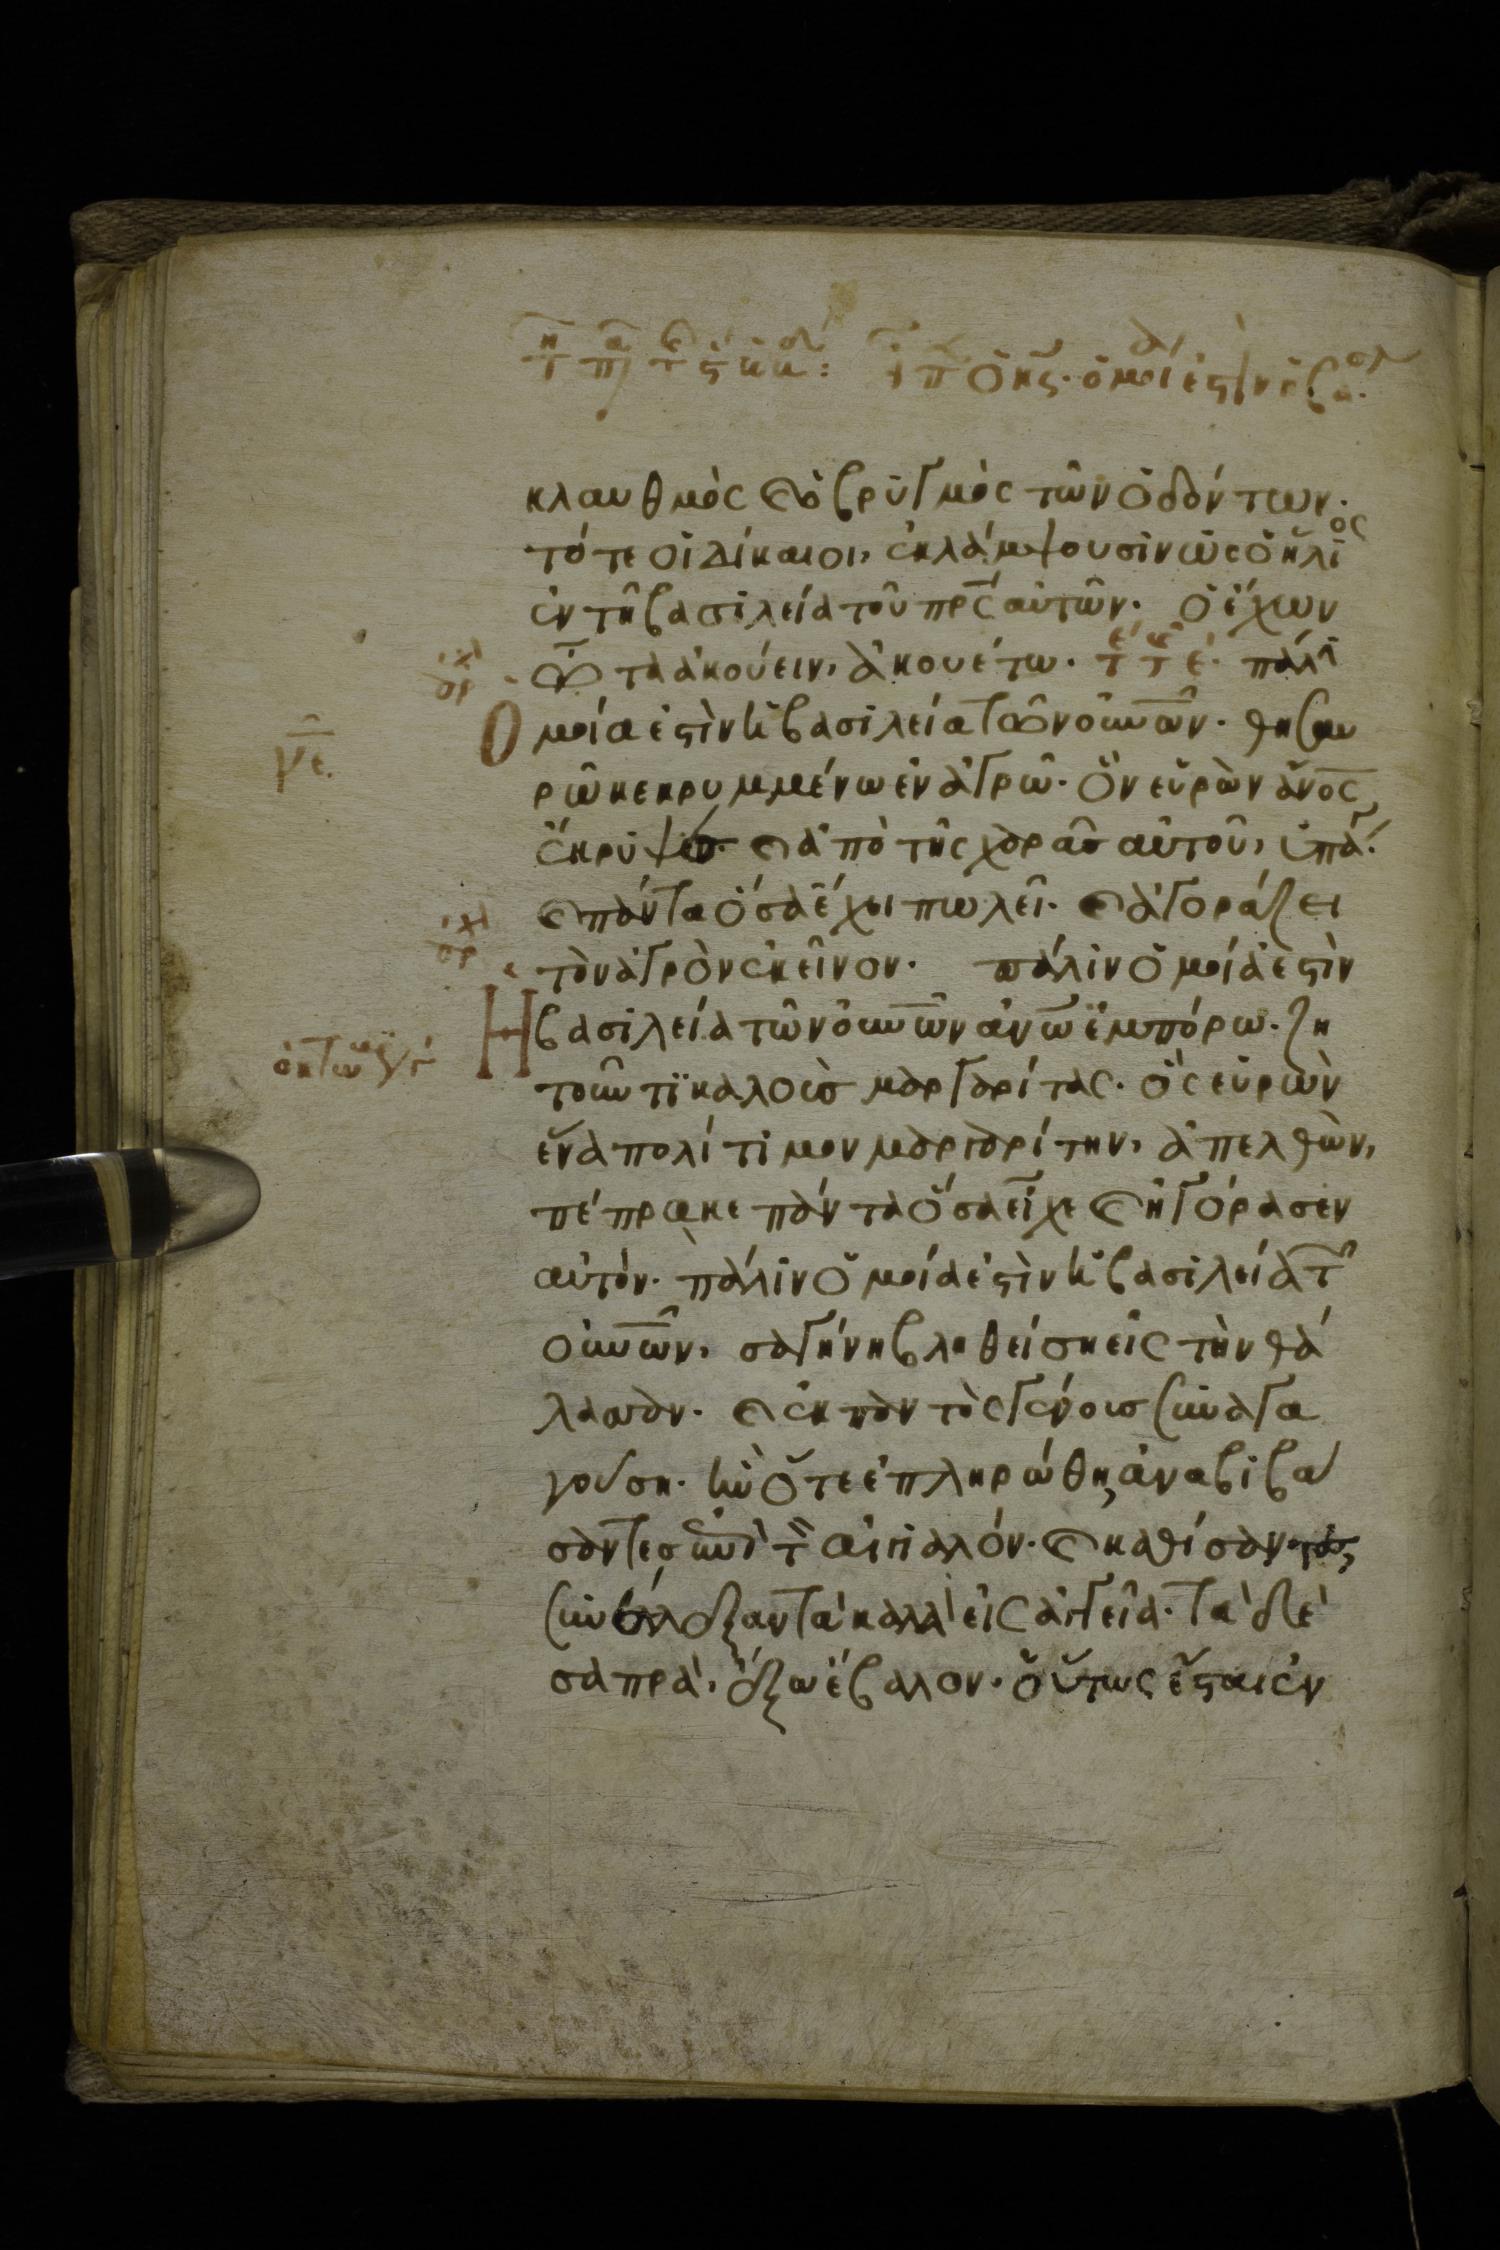 κλαυθμὸς καὶ ὁ βρυγμὸς τῶν ὀδόντων.
τότε οἱ δίκαιοι, ἐκλάμψουσιν ὡς ὁ ἥλιος
ἐν τῆ βασιλεία τοῦ πρς αὐτῶν. ὁ ἔχων
ὦτα ἀκούειν, ἀκουέτω. πάλι
Ομοία ἐστὶν ἡ βασιλεία τῶν οὐνῶν. θησαυ
ρῶ κεκρυμμένω ἐν ἀγρῶ. ὃν εὑρὼν ἄνος
ἔκρυψε. καὶ ἀπὸ τῆς χαρᾶς αὐτοῦ, ὑπά.
καὶ πάντα ὅσα ἔχει πωλεῖ. καὶ ἀγοράζει
τὸν ἀγρὸν ἐκεῖνον. πάλιν ὁμοία ἐστὶν
Η βασιλεία τῶν οὐνῶν ἀνω ἐμπόρω. ζη
τοῦντι καλοὺς μαργαρίτας. ὃς εὑρὼν
ἕνα πολίτιμον μαργαρίτην, ἀπελθὼν,
πέπρακε πάντα ὅσα εἶχε καὶ ἠγόρασεν
αὐτόν. πάλιν ὁμοία ἐστὶν ἡ βασιλεία τ
οὐνῶν, σαγήνη βληθείση εἰς τὴν θά
λασσαν. καὶ ἐκ παντὸς γένους συναγα
γούση. ἣν ὅτε ἐπληρώθη, ἀναβιβά
σαντες αὐτὴν ἐπὶ τὸν αἰγιαλόν. καὶ καθίσαντες,
συνέλεξαν τὰ καλὰ εἰς ἀγγεῖα. τὰ δὲ
σαπρὰ, ἔξω ἔβαλον. οὕτως ἔσται ἐν